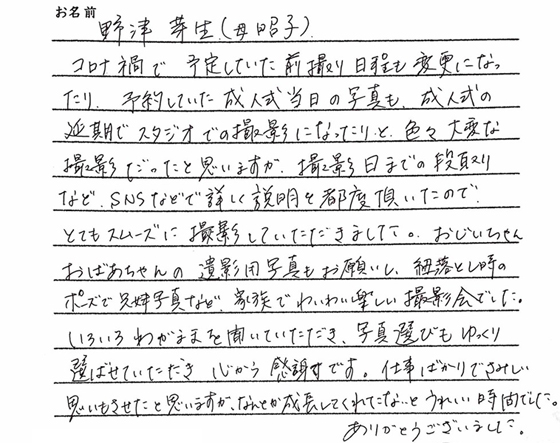 お名前
野津 芽生(母 昭子)
コロナ禍で 予定していた前撮り日程も変更になっ
たり、予約していた成人式当日の写真も、成人式の
延期でスタジオでの撮影になったりと、色々大変な
撮影だったと思いますが、撮影日までの段取り
など、SNSなどで詳しく説明を都度頂いたので、
とてもスムーズに撮影していただきました。おじいちゃん
おばあちゃんの遺影用写真もお願いし、紐落とし時の
ポーズで兄妹写真など、家族でわいわい楽しい撮影会でした。
いろいろわがままを聞いていただき、写真選びもゆっくり
選ばせていただき 心から感謝です。仕事ばかりでさみしい
思いもさせたと思いますが、なんとか成長してくれたな、とうれしい時間でした。
ありがとうございました。